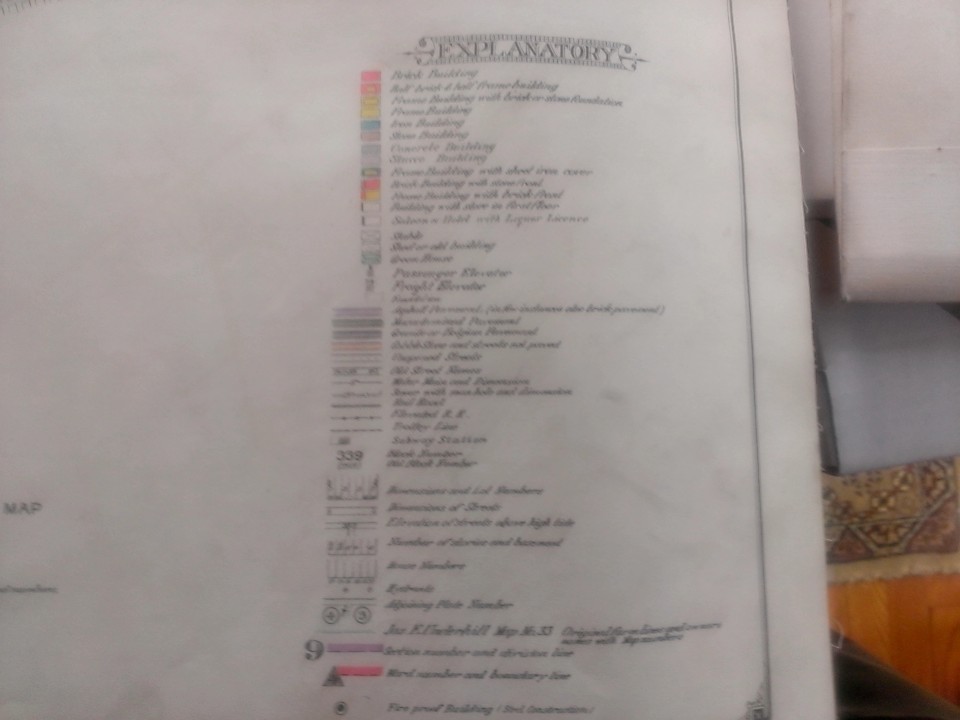 EXPLANATORY
Brick Building
Half brick & half frame building
Frame Building with brick or stone foundation
Frame Building
Iron Building
Stone Building
Concrete Building
Stucco Building
Frame Building with sheet iron cover
Brick Building with stone
Frame Building with brick
Building with store in first floor
Saloon Hotel with Liquor License
Stable
Shed or old building
Green House
Passenger Elevator
Freight Elevator
Asphalt Pavement
Macadamized Pavement
Granite or Belgian Pavement
Cobblestone and streets not paved
Unopened Streets
Old Street Names
Water Main and Dimension
Sewer with manhole and dimension
Rail Road
Elevated R.R.
Trolley Line
Subway Station
339 Block Number
Old Block Number
Dimensions and Lot Numbers
Dimensions of Streets
MAP
Elevation of streets above high tide
Number of stories and basement
House Numbers
Hydrants
Adjoining Plate Number
Jas. F. Underhill Map No. 33 Original farm lines and owners
names with Map numbers
9 Section number and division line
Ward number and boundary line
Fire proof Building (Steel Construction)